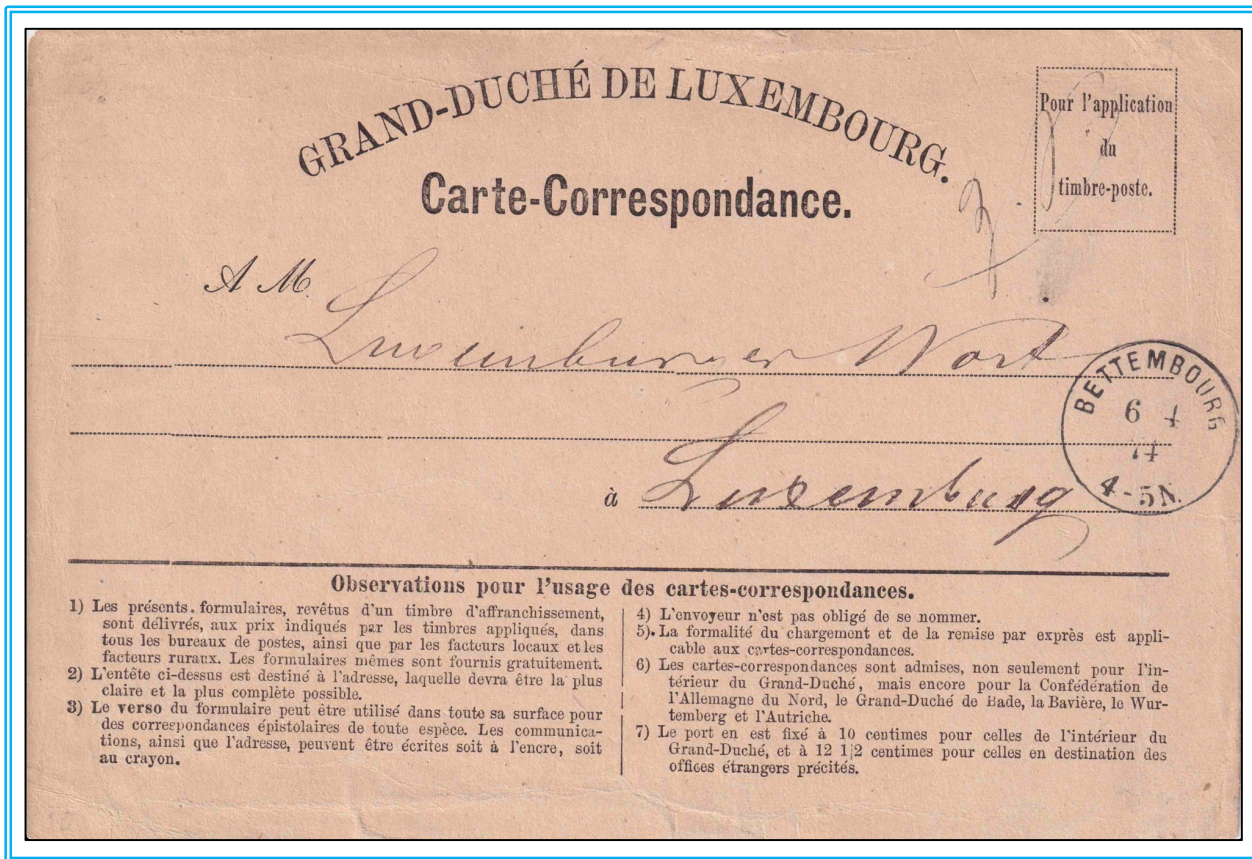 GRAND-DUCHÉ DE LUXEMBOURG.
Carte-Correspondance.
Pour l'application
du
timbre-poste.
A M
Luxemburger Wort
à Luxemburg
BETTEMBOURG
6 4
74
4-5N.
Observations pour l'usage des cartes-correspondances.
1) Les présents. formulaires, revêtus d'un timbre d'affranchissement,
sont délivrés, aux prix indiqués par les timbres appliqués, dans
tous les bureaux de postes, ainsi que par les facteurs locaux et les
facteurs ruraux. Les formulaires mêmes sont fournis gratuitement.
2) L'entête ci-dessus est destiné à l'adresse, laquelle devra être la plus
claire et la plus complète possible.
3) Le verso du formulaire peut être utilisé dans toute sa surface pour
des correspondances épistolaires de toute espèce. Les communica-
tions, ainsi que l'adresse, peuvent être écrites soit à l'encre, soit
au crayon.
4) L'envoyeur n'est pas obligé de se nommer.
5). La formalité du chargement et de la remise par exprès est appli-
cable aux cartes-correspondances.
6) Les cartes-correspondances sont admises, non seulement pour l'in-
térieur du Grand-Duché, mais encore pour la Confédération de
l'Allemagne du Nord, le Grand-Duché de Bade, la Bavière, le Wur-
temberg et l'Autriche.
7) Le port en est fixé à 10 centimes pour celles de l'intérieur du
Grand-Duché, et à 12 1|2 centimes pour celles en destination des
offices étrangers précités.